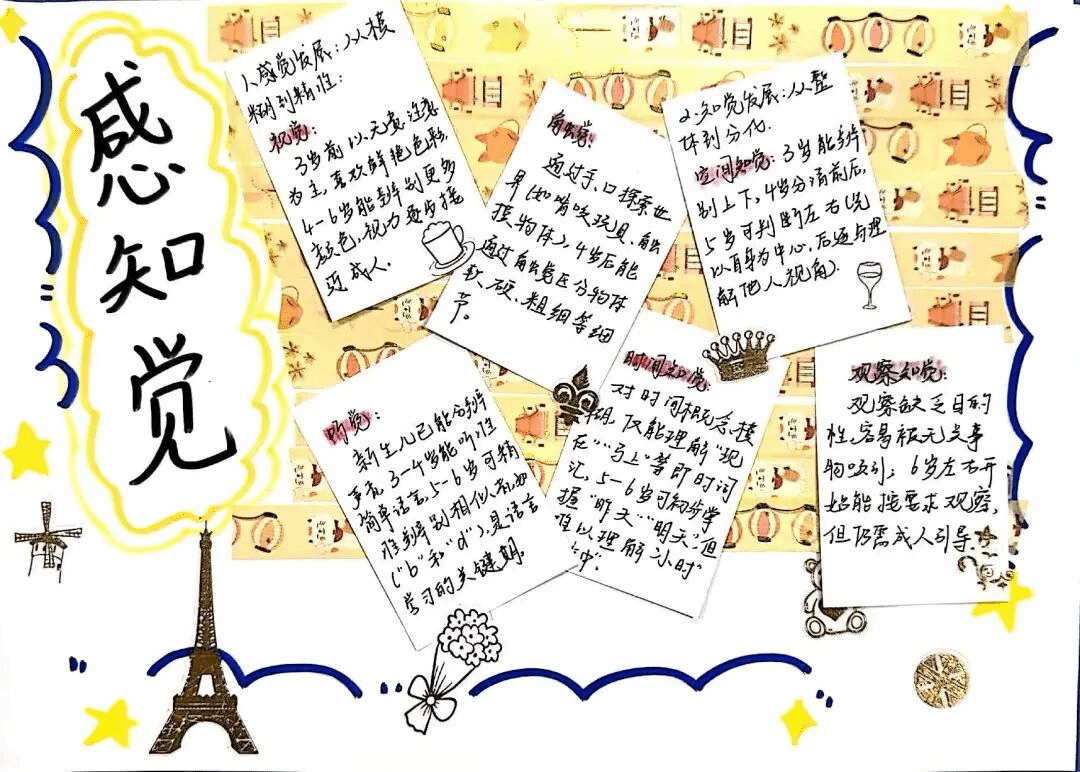 感知觉
1.感觉发展：从模
糊到精准
视觉：
3岁前以无意注意
为主，喜欢鲜艳色彩，
4-6岁能辨别更多
颜色，视力逐步接
近成人.
触觉：
通过手、口探索世
界(如啃咬玩具、触
摸物体)，4岁后能
通过触觉区分物体
软、硬、粗细等细
节。
2.知觉发展：从整
体到分化.
空间知觉：3岁能辨
别上下，4岁分清前后，
5岁可判断左右(先
以自身为中心，后逐步理
解他人视角).
听觉：
新生儿已能分辨
声亮，3-4岁能听懂
简单语言，5-6岁可精
准辨别相似音，如
("b"和"d")，是语言
学习的关键期.
时间知觉：
对时间概念模
糊，仅能理解"现
在""马上"等即时词
汇，5-6岁可初步掌
握"昨天""明天"，但
难以理解"小时"
"中".
观察知觉：
观察缺乏目的
性，容易被无关事
物吸引；6岁左右开
始能按要求观察，
但仍需成人引导.